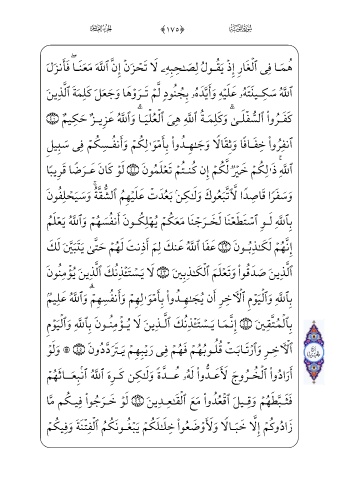 سُورَةُ التَّوْبَةِ ﴿١٧٥﴾ الجُزْءُ العَاشِرُ
هُمَا فِى ٱلْغَارِ إِذْ يَقُولُ لِصَـٰحِبِهِۦ لَا تَحْزَنْ إِنَّ ٱللَّهَ مَعَنَا ۖ فَأَنزَلَ
ٱللَّهُ سَكِينَتَهُۥ عَلَيْهِ وَأَيَّدَهُۥ بِجُنُودٍ لَّمْ تَرَوْهَا وَجَعَلَ كَلِمَةَ ٱلَّذِينَ
كَفَرُوا۟ ٱلسُّفْلَىٰ ۗ وَكَلِمَةُ ٱللَّهِ هِىَ ٱلْعُلْيَا ۗ وَٱللَّهُ عَزِيزٌ حَكِيمٌ
ٱنفِرُوا۟ خِفَافًا وَثِقَالًا وَجَـٰهِدُوا۟ بِأَمْوَٰلِكُمْ وَأَنفُسِكُمْ فِى سَبِيلِ
ٱللَّهِ ۚ ذَٰلِكُمْ خَيْرٌ لَّكُمْ إِن كُنتُمْ تَعْلَمُونَ لَوْ كَانَ عَرَضًا قَرِيبًا
وَسَفَرًا قَاصِدًا لَّٱتَّبَعُوكَ وَلَـٰكِنۢ بَعُدَتْ عَلَيْهِمُ ٱلشُّقَّةُ ۚ وَسَيَحْلِفُونَ
بِٱللَّهِ لَوِ ٱسْتَطَعْنَا لَخَرَجْنَا مَعَكُمْ يُهْلِكُونَ أَنفُسَهُمْ وَٱللَّهُ يَعْلَمُ
إِنَّهُمْ لَكَـٰذِبُونَ عَفَا ٱللَّهُ عَنكَ لِمَ أَذِنتَ لَهُمْ حَتَّىٰ يَتَبَيَّنَ لَكَ
ٱلَّذِينَ صَدَقُوا۟ وَتَعْلَمَ ٱلْكَـٰذِبِينَ لَا يَسْتَـْٔذِنُكَ ٱلَّذِينَ يُؤْمِنُونَ
بِٱللَّهِ وَٱلْيَوْمِ ٱلْـَٔاخِرِ أَن يُجَـٰهِدُوا۟ بِأَمْوَٰلِهِمْ وَأَنفُسِهِمْ ۗ وَٱللَّهُ عَلِيمٌۢ
بِٱلْمُتَّقِينَ إِنَّمَا يَسْتَـْٔذِنُكَ ٱلَّذِينَ لَا يُؤْمِنُونَ بِٱللَّهِ وَٱلْيَوْمِ
ٱلْـَٔاخِرِ وَٱرْتَابَتْ قُلُوبُهُمْ فَهُمْ فِى رَيْبِهِمْ يَتَرَدَّدُونَ ۞ وَلَوْ
أَرَادُوا۟ ٱلْخُرُوجَ لَأَعَدُّوا۟ لَهُۥ عُدَّةً وَلَـٰكِن كَرِهَ ٱللَّهُ ٱنۢبِعَاثَهُمْ
فَثَبَّطَهُمْ وَقِيلَ ٱقْعُدُوا۟ مَعَ ٱلْقَـٰعِدِينَ لَوْ خَرَجُوا۟ فِيكُم مَّا
زَادُوكُمْ إِلَّا خَبَالًا وَلَأَوْضَعُوا۟ خِلَـٰلَكُمْ يَبْغُونَكُمُ ٱلْفِتْنَةَ وَفِيكُمْ